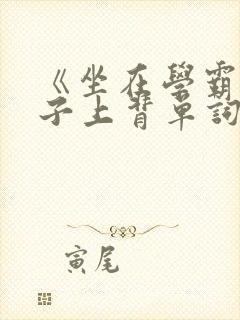 《坐在學霸
子上背單詞
寅尾